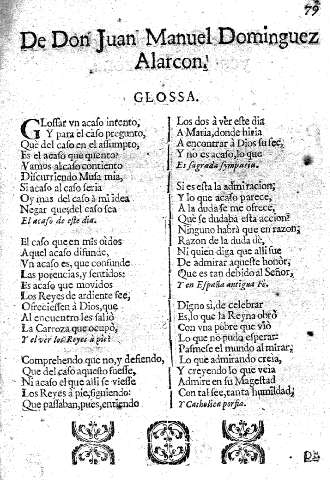 79
De Don Juan Manuel Dominguez
Alarcon.
GLOSSA.
GLossar vn acaso intento,
Y para el caso pregunto,
Què del caso en el assumpto,
Es el acaso que quento?
Vamos al caso contiento
Discurriendo Musa mia,
Si acaso al caso seria
Oy mas del caso à mi idea
Negar que del caso sea
El acaso de este dia.
El caso que en mis oìdos
Aquel acaso difunde,
Vn acaso es, que confunde
Las potencias, y sentidos:
Es acaso que movidos
Los Reyes de ardiente fee,
Ofreciessen à Dios, que
Al encuentro les saliò
La Carroza que ocupò,
Y el ver los Reyes à pie?
Comprehendo que no, y defiendo,
Que del caso aquesto fuesse,
Ni acaso el que alli se viesse
Los Reyes à pie, siguiendo:
Que passaban, pues, entiendo
Los dos à vèr este dia
A Maria, donde hiria
A encontrar à Dios su fee,
Y no es acaso, lo que
Es sagrada sympatia.
Si es esta la admiracion,
Y lo que acaso parece,
A la duda se me ofrece,
Què se dudaba esta accion?
Ninguno habrà que en razon,
Razon de la duda dè,
Ni quien diga que alli fue
De admirar aqueste honòr,
Que es tan debido al Señor,
Y en España antigua Fè.
Digno sì, de celebrar
Es, lo que la Reyna obrò
Con vna pobre que viò
Lo que no pudo esperar:
Pasmese el mundo al mirar,
Lo que admirando creìa,
Y creyendo lo que veìa
Admire en su Magestad
Con tal fee, tanta humildad,
Y Catholica porfia.